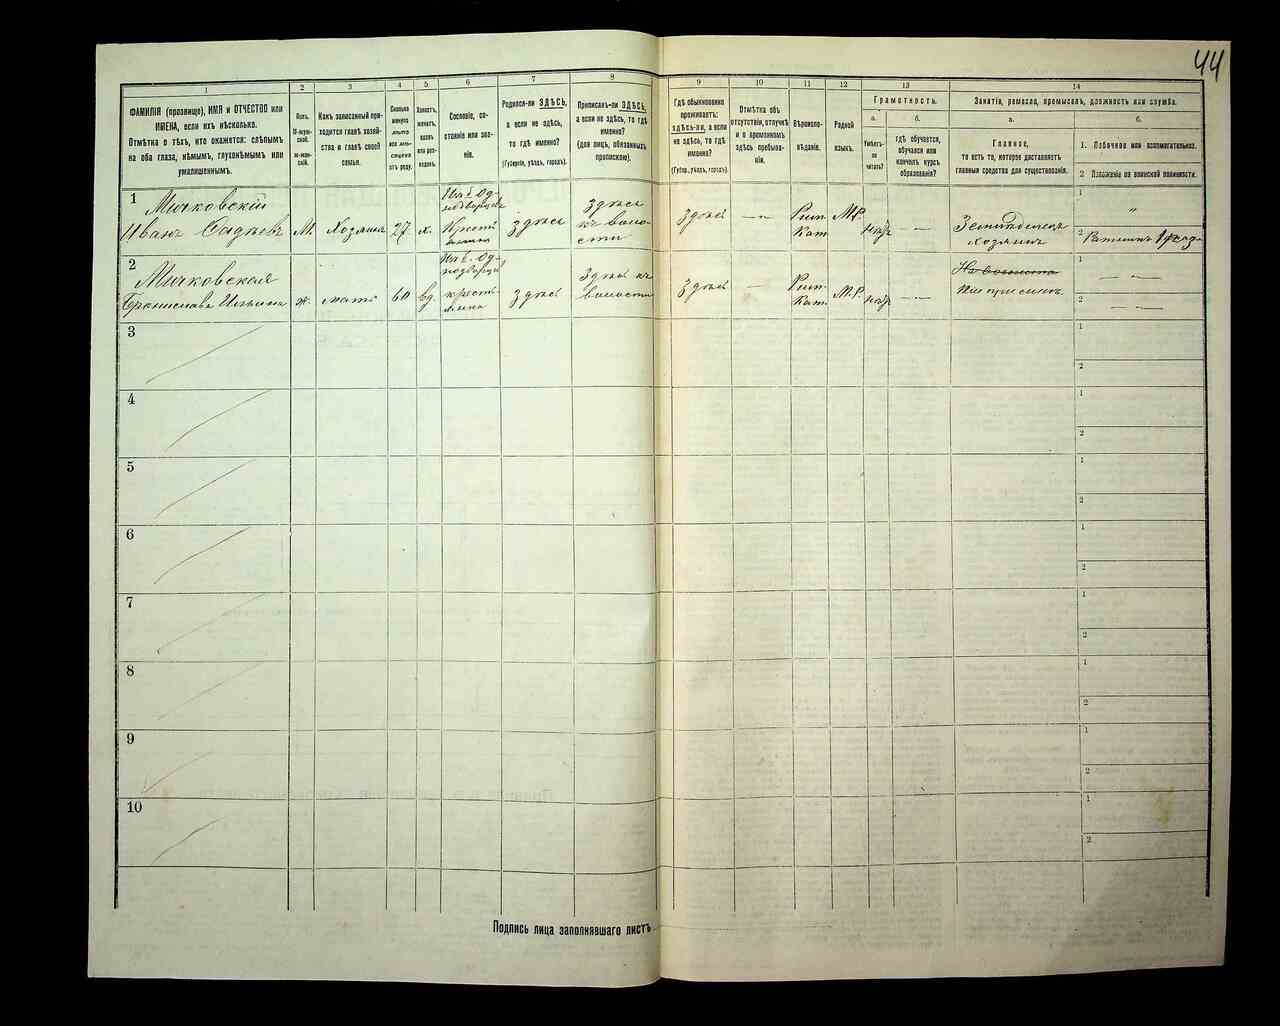 44
1
2
3
4
5
6
7
8
9
10
11
12
13
14
ФАМИЛІЯ (прозвище), ИМЯ и ОТЧЕСТВО или
ИМЕНА, если ихъ нѣсколько.
Отмѣтка о тѣхъ, кто окажется: слѣпымъ
на оба глаза, нѣмымъ, глухонѣмымъ или
умалишеннымъ.
Полъ.
М-муж-
ской.
Ж-жен-
скій.
Какъ записанный при-
ходится главѣ хозяй-
ства и главѣ своей
семьи.
Сколько
минуло
лѣтъ
или мѣ-
сяцевъ
отъ роду.
Холостъ,
женатъ,
вдовъ
или раз-
веденъ.
Сословіе, со-
стояніе или зва-
ніе.
Родился-ли ЗДѢСЬ,
а если не здѣсь,
то гдѣ именно?
(Губернія, уѣздъ, городъ).
Приписанъ-ли ЗДѢСЬ,
а если не здѣсь, то гдѣ
именно?
(для лицъ, обязанныхъ
припискою).
Гдѣ обыкновенно
проживаетъ:
здѣсь-ли, а если
не здѣсь, то гдѣ
именно?
(Губер., уѣздъ, городъ).
Отмѣтка объ
отсутствіи, отлучкѣ
и о временномъ
здѣсь пребыва-
ніи.
Вѣроиспо-
вѣданіе.
Родной
языкъ.
Грамотность.
а.
б.
Умѣетъ-
ли
читать?
гдѣ обучается,
обучался или
кончилъ курсъ
образованія?
Занятіе, ремесло, промыселъ, должность или служба.
а.
б.
Главное,
то есть то, которое доставляетъ
главныя средства для существованія.
1. Побочное или вспомогательное.
2 Положеніе по воинской повинности.
1
Мичковскій
Иванъ
М.
Хозяинъ
27
х.
Изъ Од-
нодворцевъ
Крест
здѣсь
здѣсь
къ воло-
сти
здѣсь
Рим.
Кат.
М.Р.
нѣтъ
Земледѣлецъ
хозяинъ
1 "
2 Ратникъ 1 разр.
2
Мичковская
Бронислава
ж.
мать
60
вд.
Изъ Од-
нодворц.
кресть
янка
здѣсь
здѣсь къ
волости
здѣсь
Рим.
Кат.
М.Р.
нѣтъ
при сынѣ.
1
2
3
1
2
4
1
2
5
1
2
6
1
2
7
1
2
8
1
2
9
1
2
10
1
2
Подпись лица заполнявшаго листъ